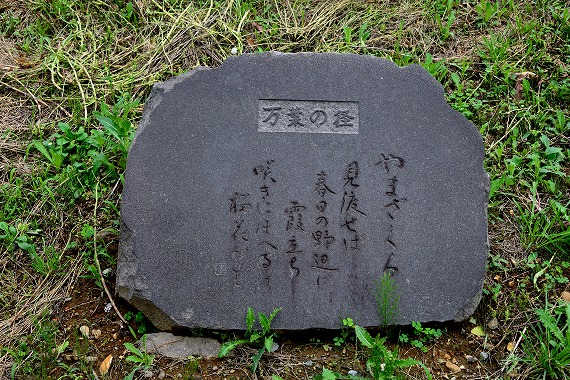 万葉の径
やまざくら
見渡せば
春日の野辺に
霞立ち
咲きにほへるは
桜花かも